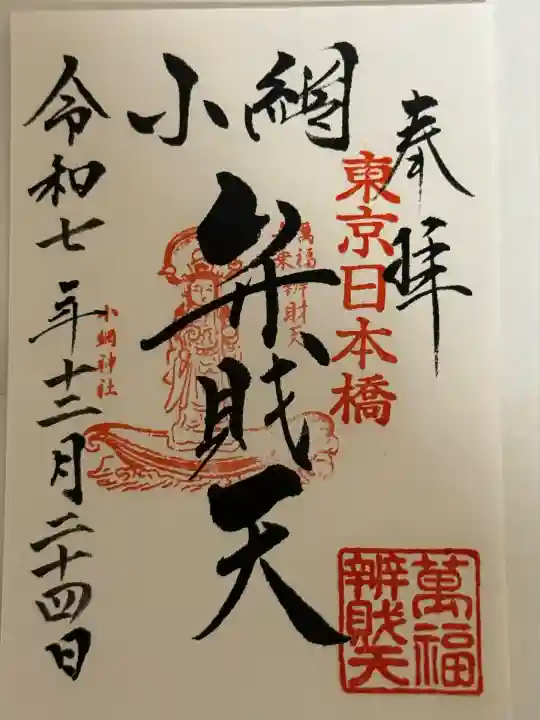 奉拝
東京日本橋
小網
弁財天
萬福
舟乗辨財天
小網神社
令和七年十二月二十四日
萬福
辨財天